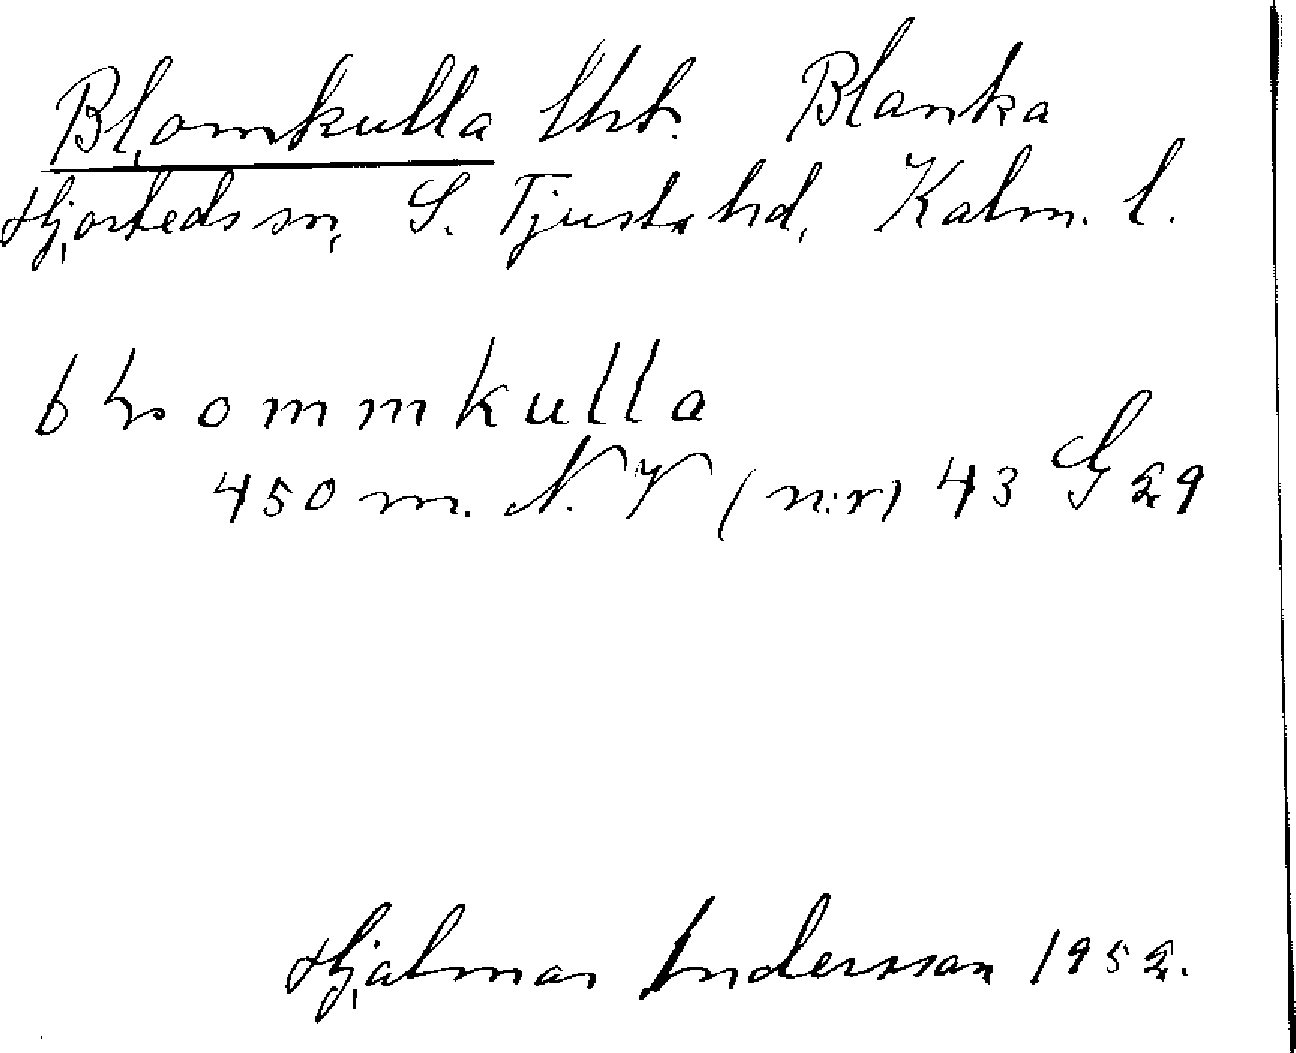 Blomkulla lht. Blanka
Hjorteds sn, S. Tjusts hd, Kalm. l.
blommkulla
450 m. N. V (n:r) 43 G 29
Hjalmar Andersson 1952.